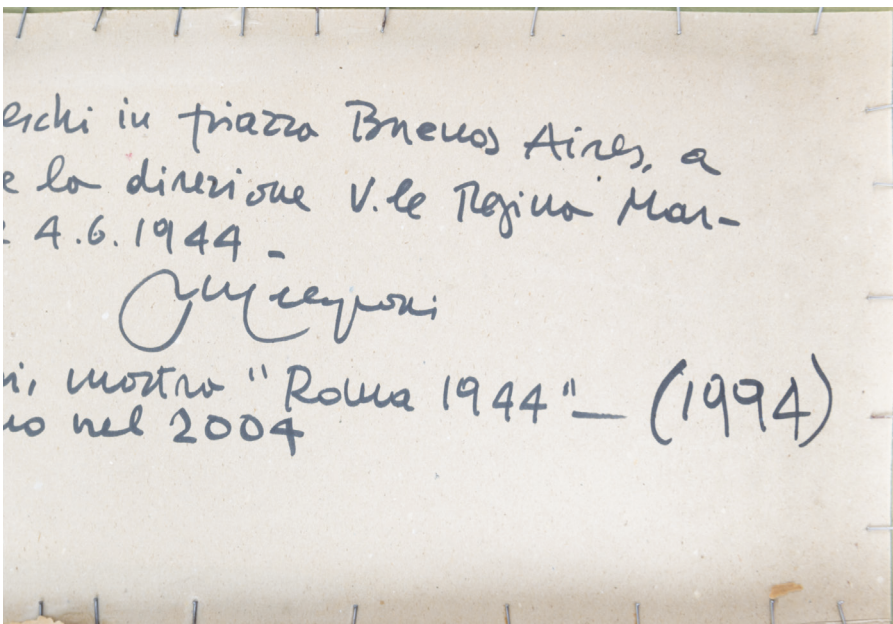 eschi in piazza Buenos Aires, a
e la direzione V.le Regina Mar-
4.6.1944 -
i, mostra "Roma 1944" — (1994)
no nel 2004